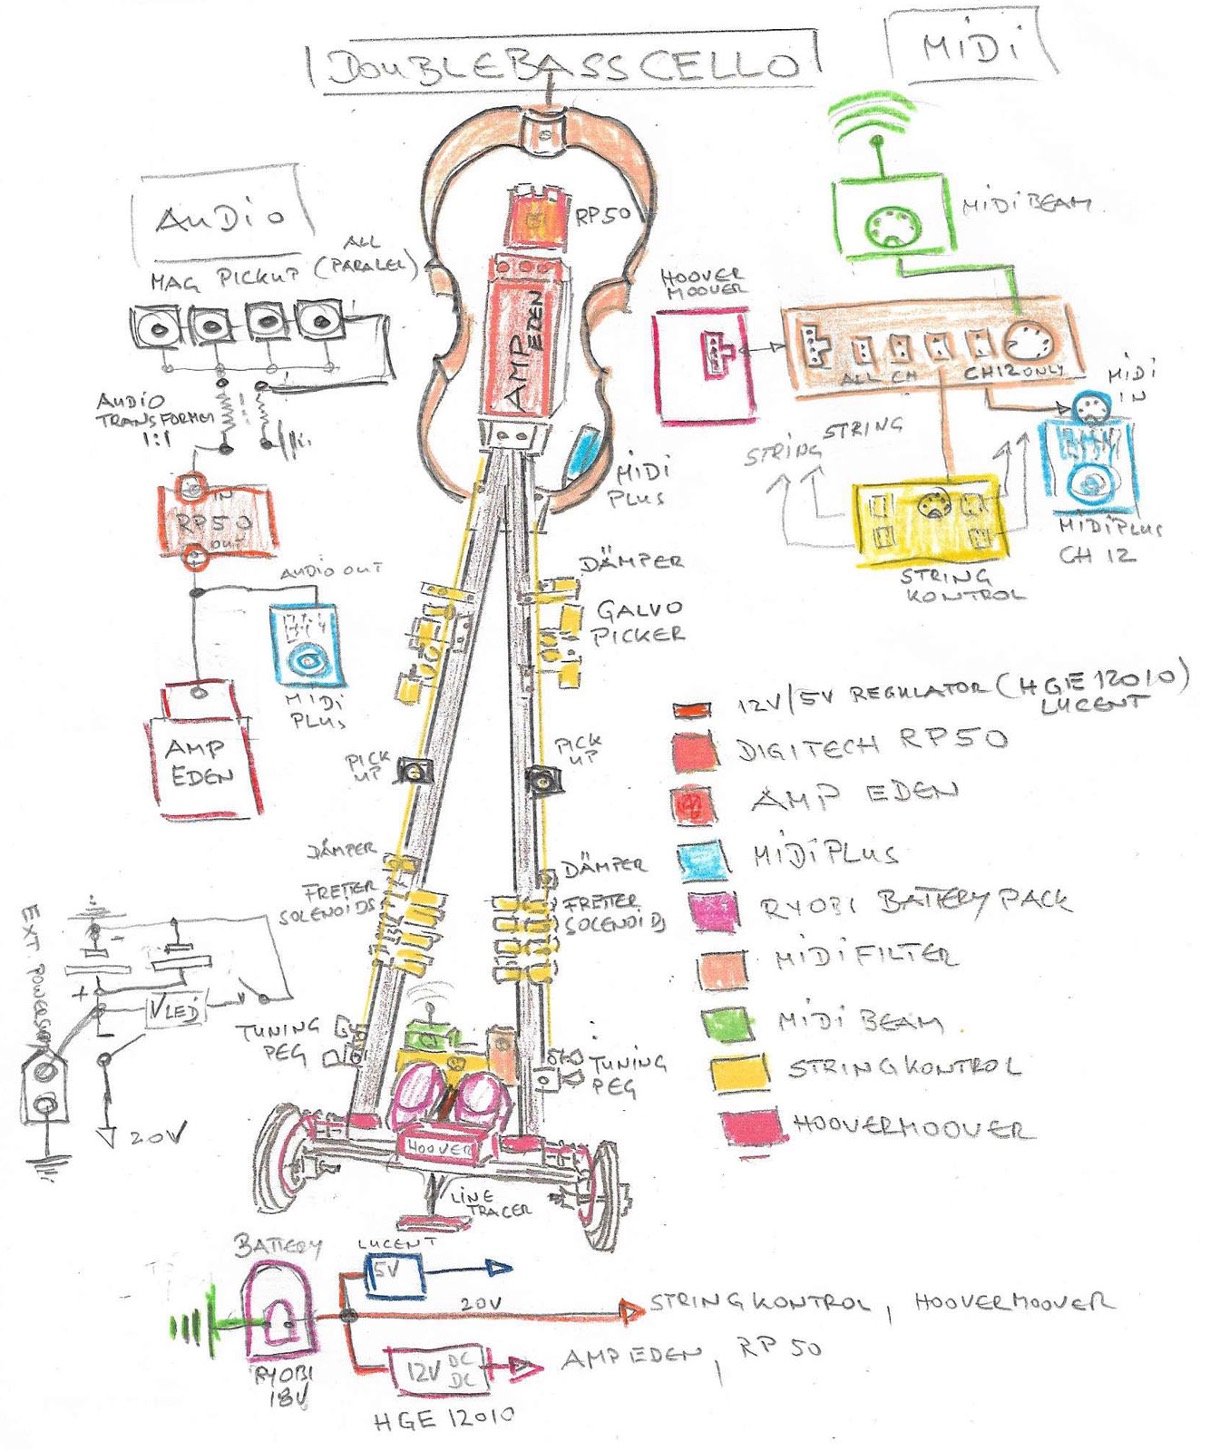 DOUBLEBASSCELLO
MIDI
AUDIO
MAG PICKUP
ALL
(PARALEL)
AUDIO
TRANSFORMER
1:1
IN
RP50
OUT
AUDIO OUT
MIDI
PLUS
AMP
EDEN
RP50
AMP EDEN
MIDI
PLUS
MIDIBEAM
HOOVER
MOOVER
ALL CH
CH12 ONLY
MIDI
IN
STRING
STRING
MIDIPLUS
CH 12
STRING
KONTROL
DÄMPER
GALVO
PICKER
PICK
UP
PICK
UP
DÄMPER
FRETTER
SOLENOIDS
DÄMPER
FRETTER
SOLENOIDS
TUNING
PEG
TUNING
PEG
HOOVER
LINE
TRACER
12V/5V REGULATOR (HGE 12010)
LUCENT
DIGITECH RP50
AMP EDEN
MIDIPLUS
RYOBI BATTERY PACK
MIDIFILTER
MIDI BEAM
STRINGKONTROL
HOOVERMOOVER
-
+
VLED
20V
BATTERY
RYOBI
18V
LUCENT
5V
20V
STRINGKONTROL, HOOVERMOOVER
12V DC
DC
AMP EDEN, RP 50
HGE 12010